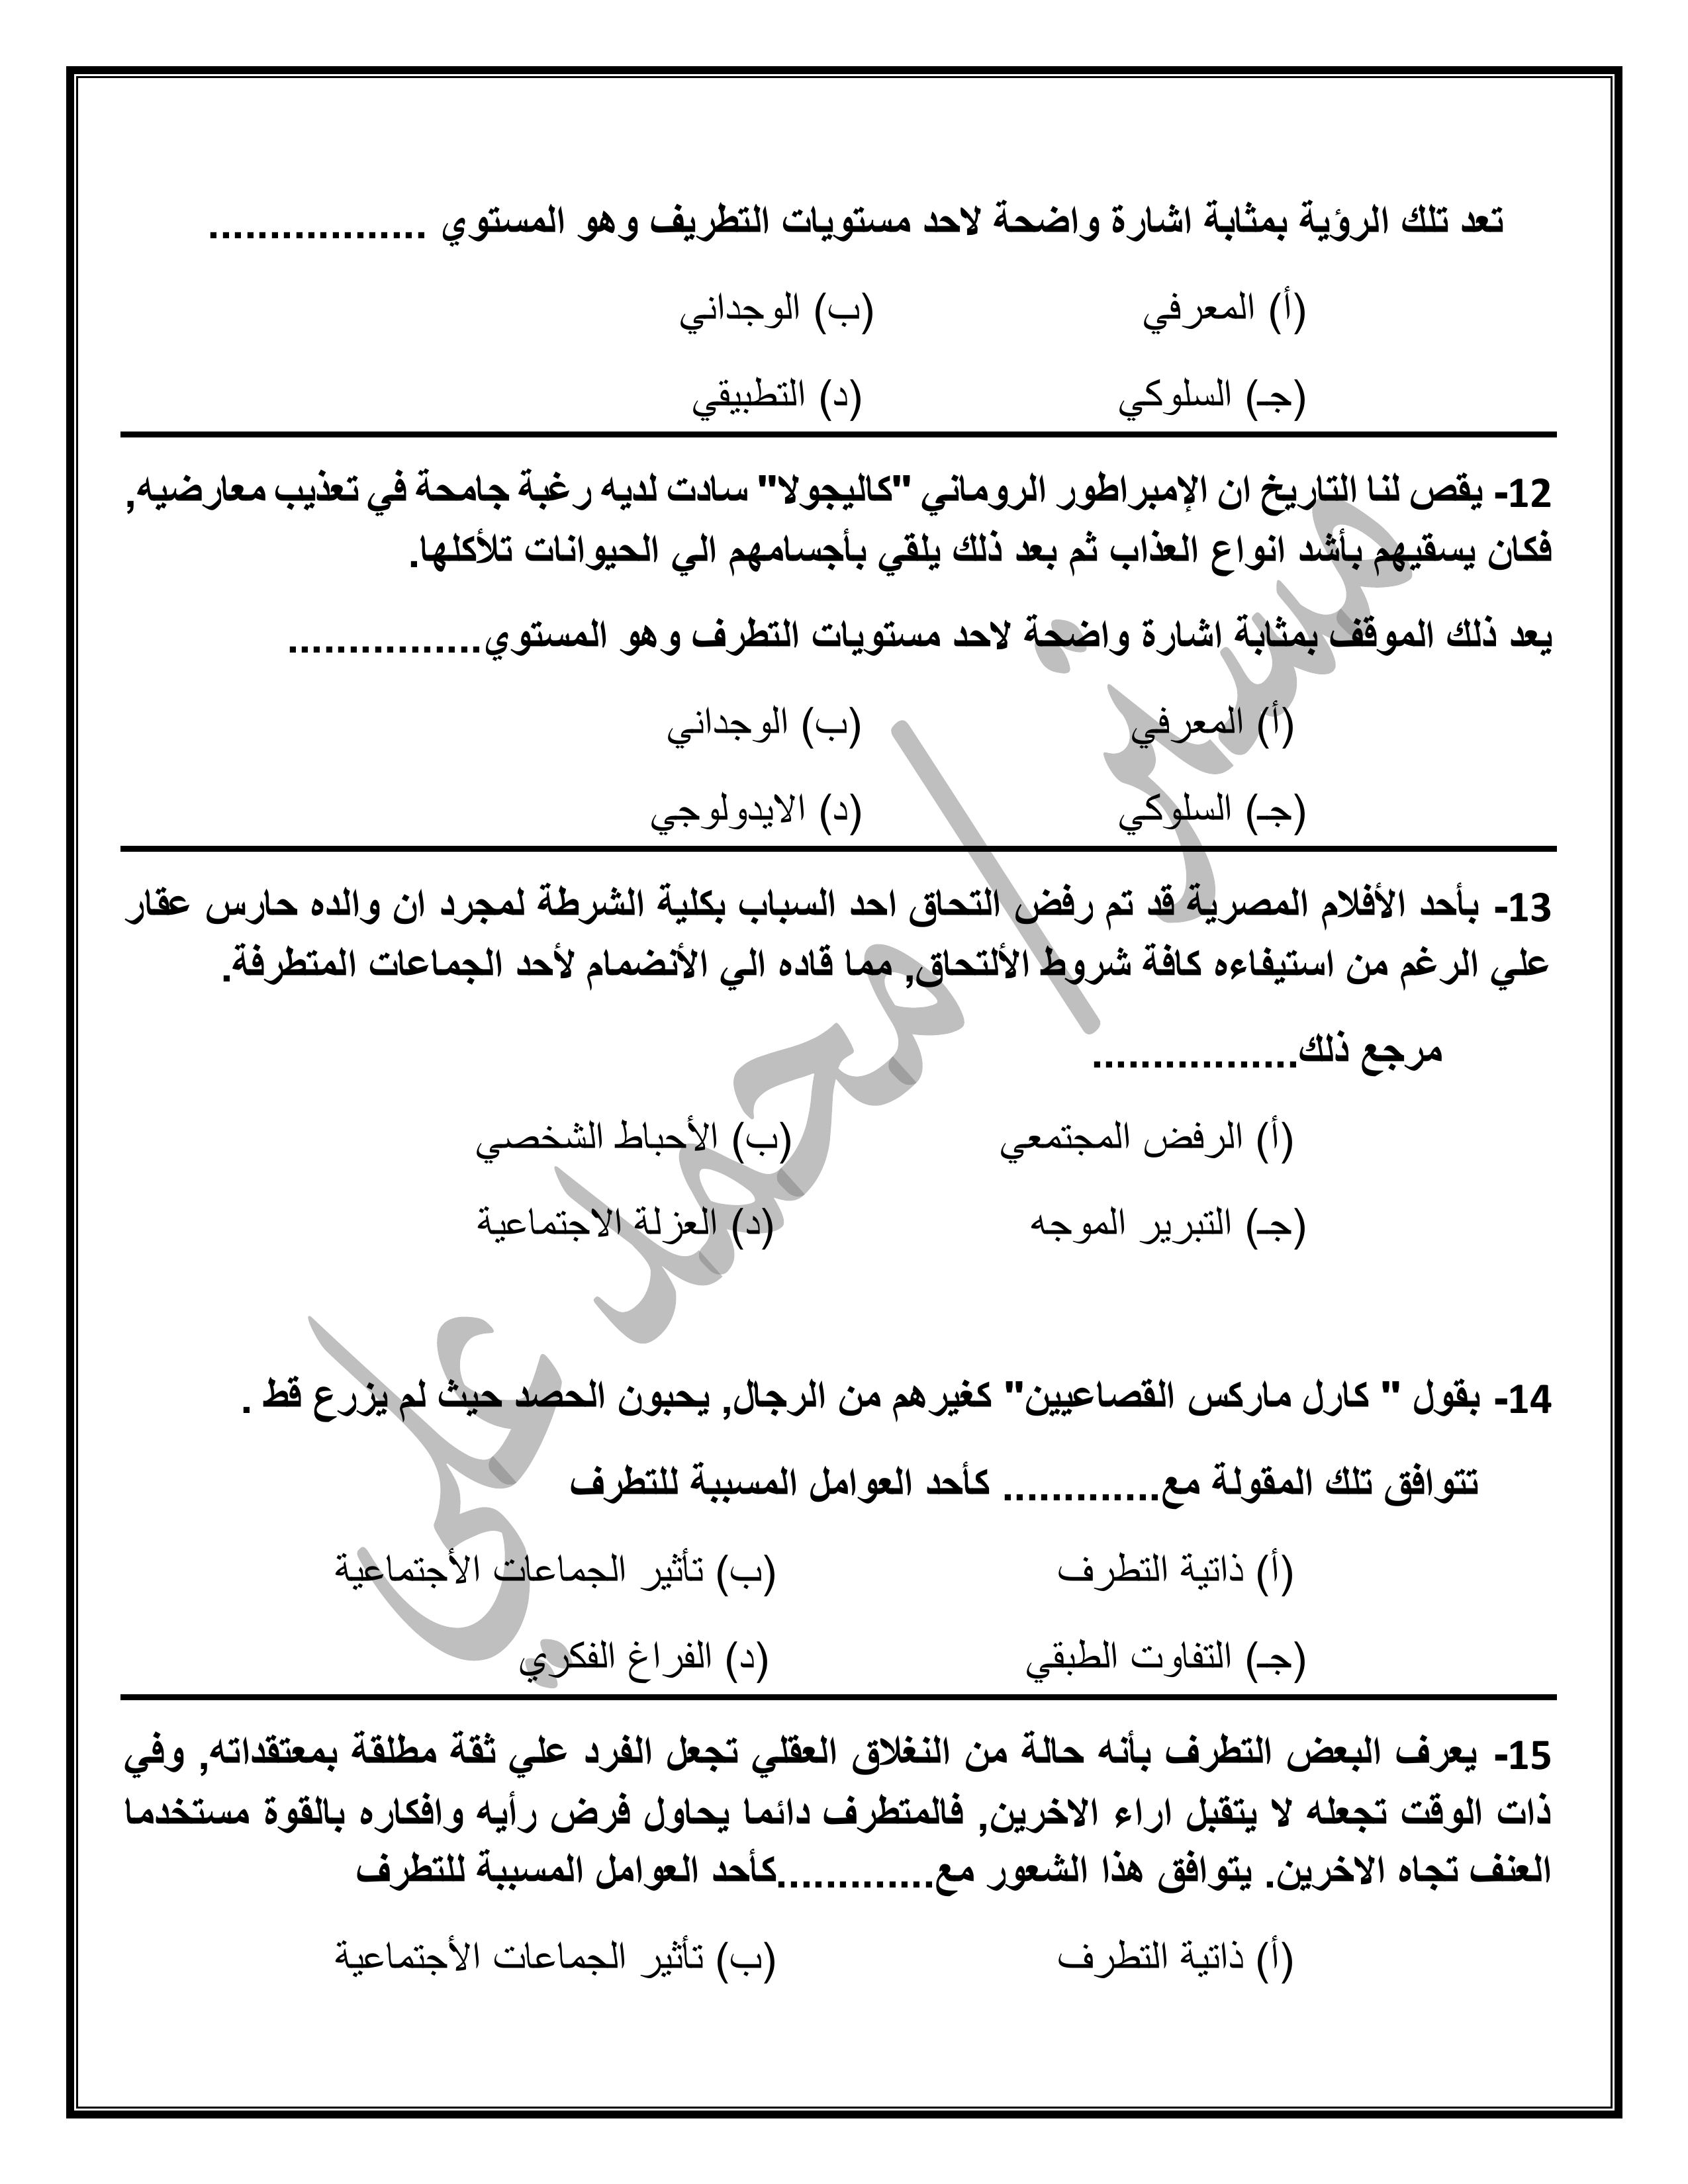 تعد تلك الرؤية بمثابة اشارة واضحة لاحد مستويات التطريف وهو المستوي ..................
(أ) المعرفي (ب) الوجداني
(جـ) السلوكي (د) التطبيقي
12- يقص لنا التاريخ ان الإمبراطور الروماني "كاليجولا" سادت لديه رغبة جامحة في تعذيب معارضيه,
فكان يسقيهم بأشد انواع العذاب ثم بعد ذلك يلقي بأجسامهم الي الحيوانات تلأكلها.
يعد ذلك الموقف بمثابة اشارة واضحة لاحد مستويات التطرف وهو المستوي................
(أ) المعرفي (ب) الوجداني
(جـ) السلوكي (د) الايدولوجي
13- بأحد الأفلام المصرية قد تم رفض التحاق احد السباب بكلية الشرطة لمجرد ان والده حارس عقار
علي الرغم من استيفاءه كافة شروط الألتحاق, مما قاده الي الأنضمام لأحد الجماعات المتطرفة.
مرجع ذلك.................
(أ) الرفض المجتمعي (ب) الأحباط الشخصي
(جـ) التبرير الموجه (د) العزلة الاجتماعية
14- بقول " كارل ماركس القصاعيين" كغيرهم من الرجال, يحبون الحصد حيث لم يزرع قط .
تتوافق تلك المقولة مع............. كأحد العوامل المسببة للتطرف
(أ) ذاتية التطرف (ب) تأثير الجماعات الأجتماعية
(جـ) التفاوت الطبقي (د) الفراغ الفكري
15- يعرف البعض التطرف بأنه حالة من النغلاق العقلي تجعل الفرد علي ثقة مطلقة بمعتقداته, وفي
ذات الوقت تجعله لا يتقبل اراء الاخرين, فالمتطرف دائما يحاول فرض رأيه وافكاره بالقوة مستخدما
العنف تجاه الاخرين. يتوافق هذا الشعور مع.............كأحد العوامل المسببة للتطرف
(أ) ذاتية التطرف (ب) تأثير الجماعات الأجتماعية
مستر/محمد علي